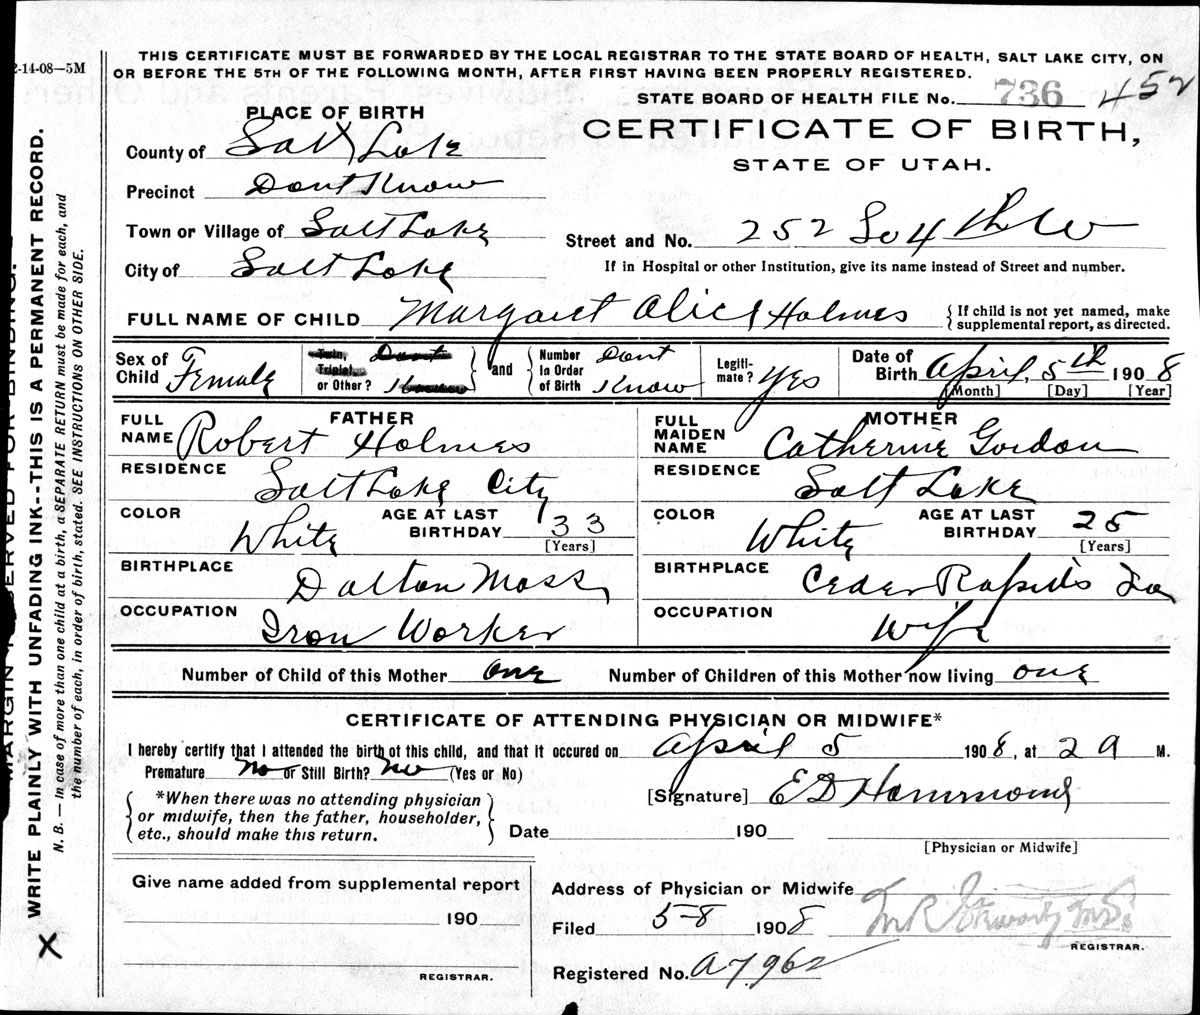 2-14-08—5M
THIS CERTIFICATE MUST BE FORWARDED BY THE LOCAL REGISTRAR TO THE STATE BOARD OF HEALTH, SALT LAKE CITY, ON
OR BEFORE THE 5TH OF THE FOLLOWING MONTH, AFTER FIRST HAVING BEEN PROPERLY REGISTERED.
STATE BOARD OF HEALTH FILE No. 736 452
PLACE OF BIRTH
CERTIFICATE OF BIRTH,
STATE OF UTAH.
County of Salt Lake
Precinct Dont Know
Town or Village of Salt Lake
Street and No. 252 So 4th W
City of Salt Lake
If in Hospital or other Institution, give its name instead of Street and number.
FULL NAME OF CHILD Margaret Alice Holmes
If child is not yet named, make
supplemental report, as directed.
Sex of Child Female
Twin, Triplet, or Other?
and
Number In Order of Birth Dont Know
Legiti-mate? Yes
Date of Birth April, 5th 1908
[Month] [Day] [Year]
FATHER
FULL NAME Robert Holmes
RESIDENCE
Salt Lake City
COLOR White
AGE AT LAST BIRTHDAY 33
[Years]
BIRTHPLACE
Dalton Mass
OCCUPATION
Iron Worker
MOTHER
FULL MAIDEN NAME Catherine Gordon
RESIDENCE
Salt Lake
COLOR White
AGE AT LAST BIRTHDAY 25
[Years]
BIRTHPLACE
Ceder Rapids Ia
OCCUPATION
Wife
Number of Child of this Mother one
Number of Children of this Mother now living one
CERTIFICATE OF ATTENDING PHYSICIAN OR MIDWIFE*
I hereby certify that I attended the birth of this child, and that it occured on April 5 1908, at 2 A M.
Premature No or Still Birth? No (Yes or No)
*When there was no attending physician
or midwife, then the father, householder,
etc., should make this return.
[Signature] E D Hammond
Date 190
[Physician or Midwife]
Give name added from supplemental report
190
REGISTRAR.
Address of Physician or Midwife
Filed 5-8 1908
M.D.
REGISTRAR.
Registered No. A7962
MARGIN RESERVED FOR BINDING.
WRITE PLAINLY WITH UNFADING INK--THIS IS A PERMANENT RECORD.
N. B. — In case of more than one child at a birth, a SEPARATE RETURN must be made for each, and
the number of each, in order of birth, stated. SEE INSTRUCTIONS ON OTHER SIDE.
X